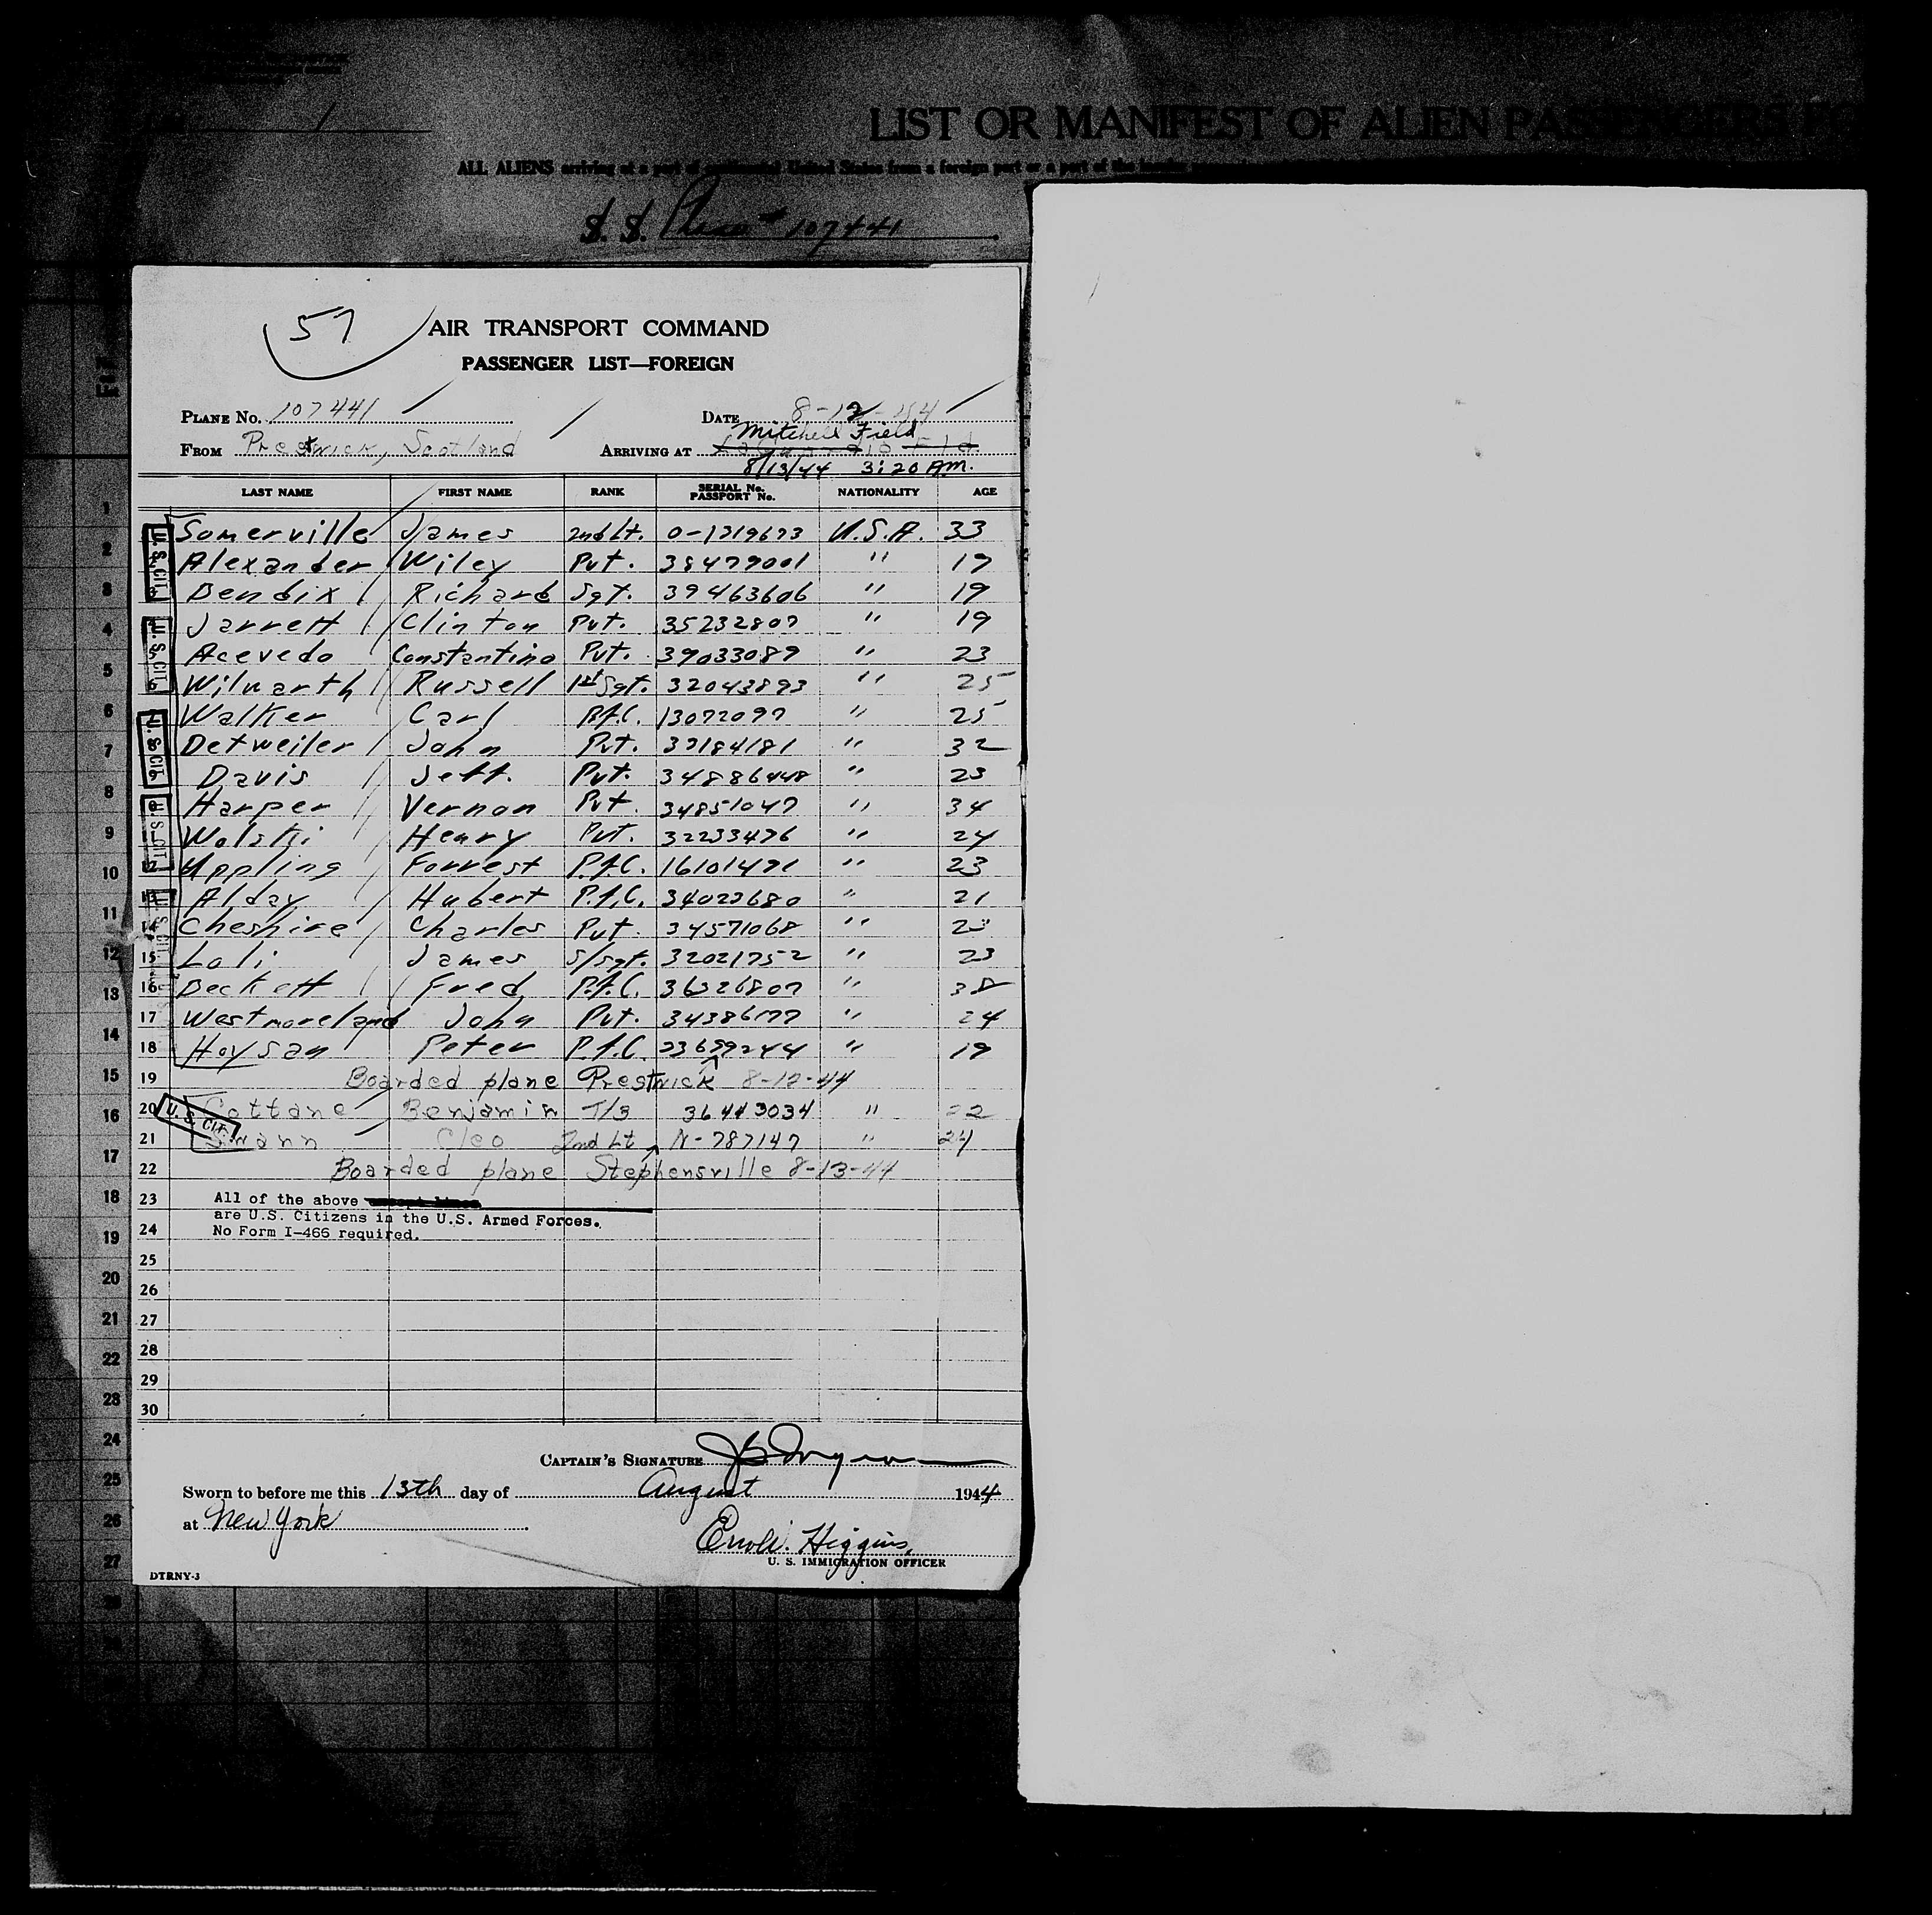 LIST OR MANIFEST OF ALIEN PASSENGERS
ALL ALIENS arriving at a port of continental United States from a foreign port or a port of the insular
S. S. 107441
57
AIR TRANSPORT COMMAND
PASSENGER LIST—FOREIGN
PLANE No. 107441 DATE 8-12-44
Mitchell Field
FROM Prestwick, Scotland ARRIVING AT
8/13/44 3:20 AM.
LAST NAME FIRST NAME RANK SERIAL No. PASSPORT No. NATIONALITY AGE
Somerville James 2nd Lt. 0-1319673 U.S.A. 33
Alexander Wiley Pvt. 38479001 " 19
Bendix Richard Sgt. 39463606 " 19
Jarrett Clinton Pvt. 35232807 " 19
Acevedo Constantino Pvt. 39033089 " 23
Wilwarth Russell 1st Sgt. 32043893 " 25
Walker Carl P.F.C. 13072097 " 25
Detweiler John Pvt. 37184181 " 32
Davis Jeff. Pvt. 34886448 " 23
Harper Vernon Pvt. 34851047 " 34
Wolski Henry Pvt. 32233476 " 24
Uppling Forrest P.F.C. 16101471 " 23
Alday Hubert P.F.C. 34023680 " 21
14 Cheshire Charles Pvt. 34571068 "
15 Loli James S/Sgt. 32021752 " 23
16 Beckett Fred P.F.C. 36326807 " 38
17 Westmoreland John Pvt. 34386177 " 24
18 Hoysan Peter P.F.C. 33659244 " 19
19 Boarded plane Prestwick 8-12-44
20 U. S. CIT. Cottone Benjamin T/3 36443034 " 22
21 Swann Cleo 2nd Lt N-787147 " 24
22 Boarded plane Stephensville 8-13-44
23 All of the above
are U.S. Citizens in the U.S. Armed Forces.
24 No Form I-466 required.
25
26
27
28
29
30
CAPTAIN'S SIGNATURE
Sworn to before me this 13th day of August 1944
at New York
Higgins,
U. S. IMMIGRATION OFFICER
DTRNY-3